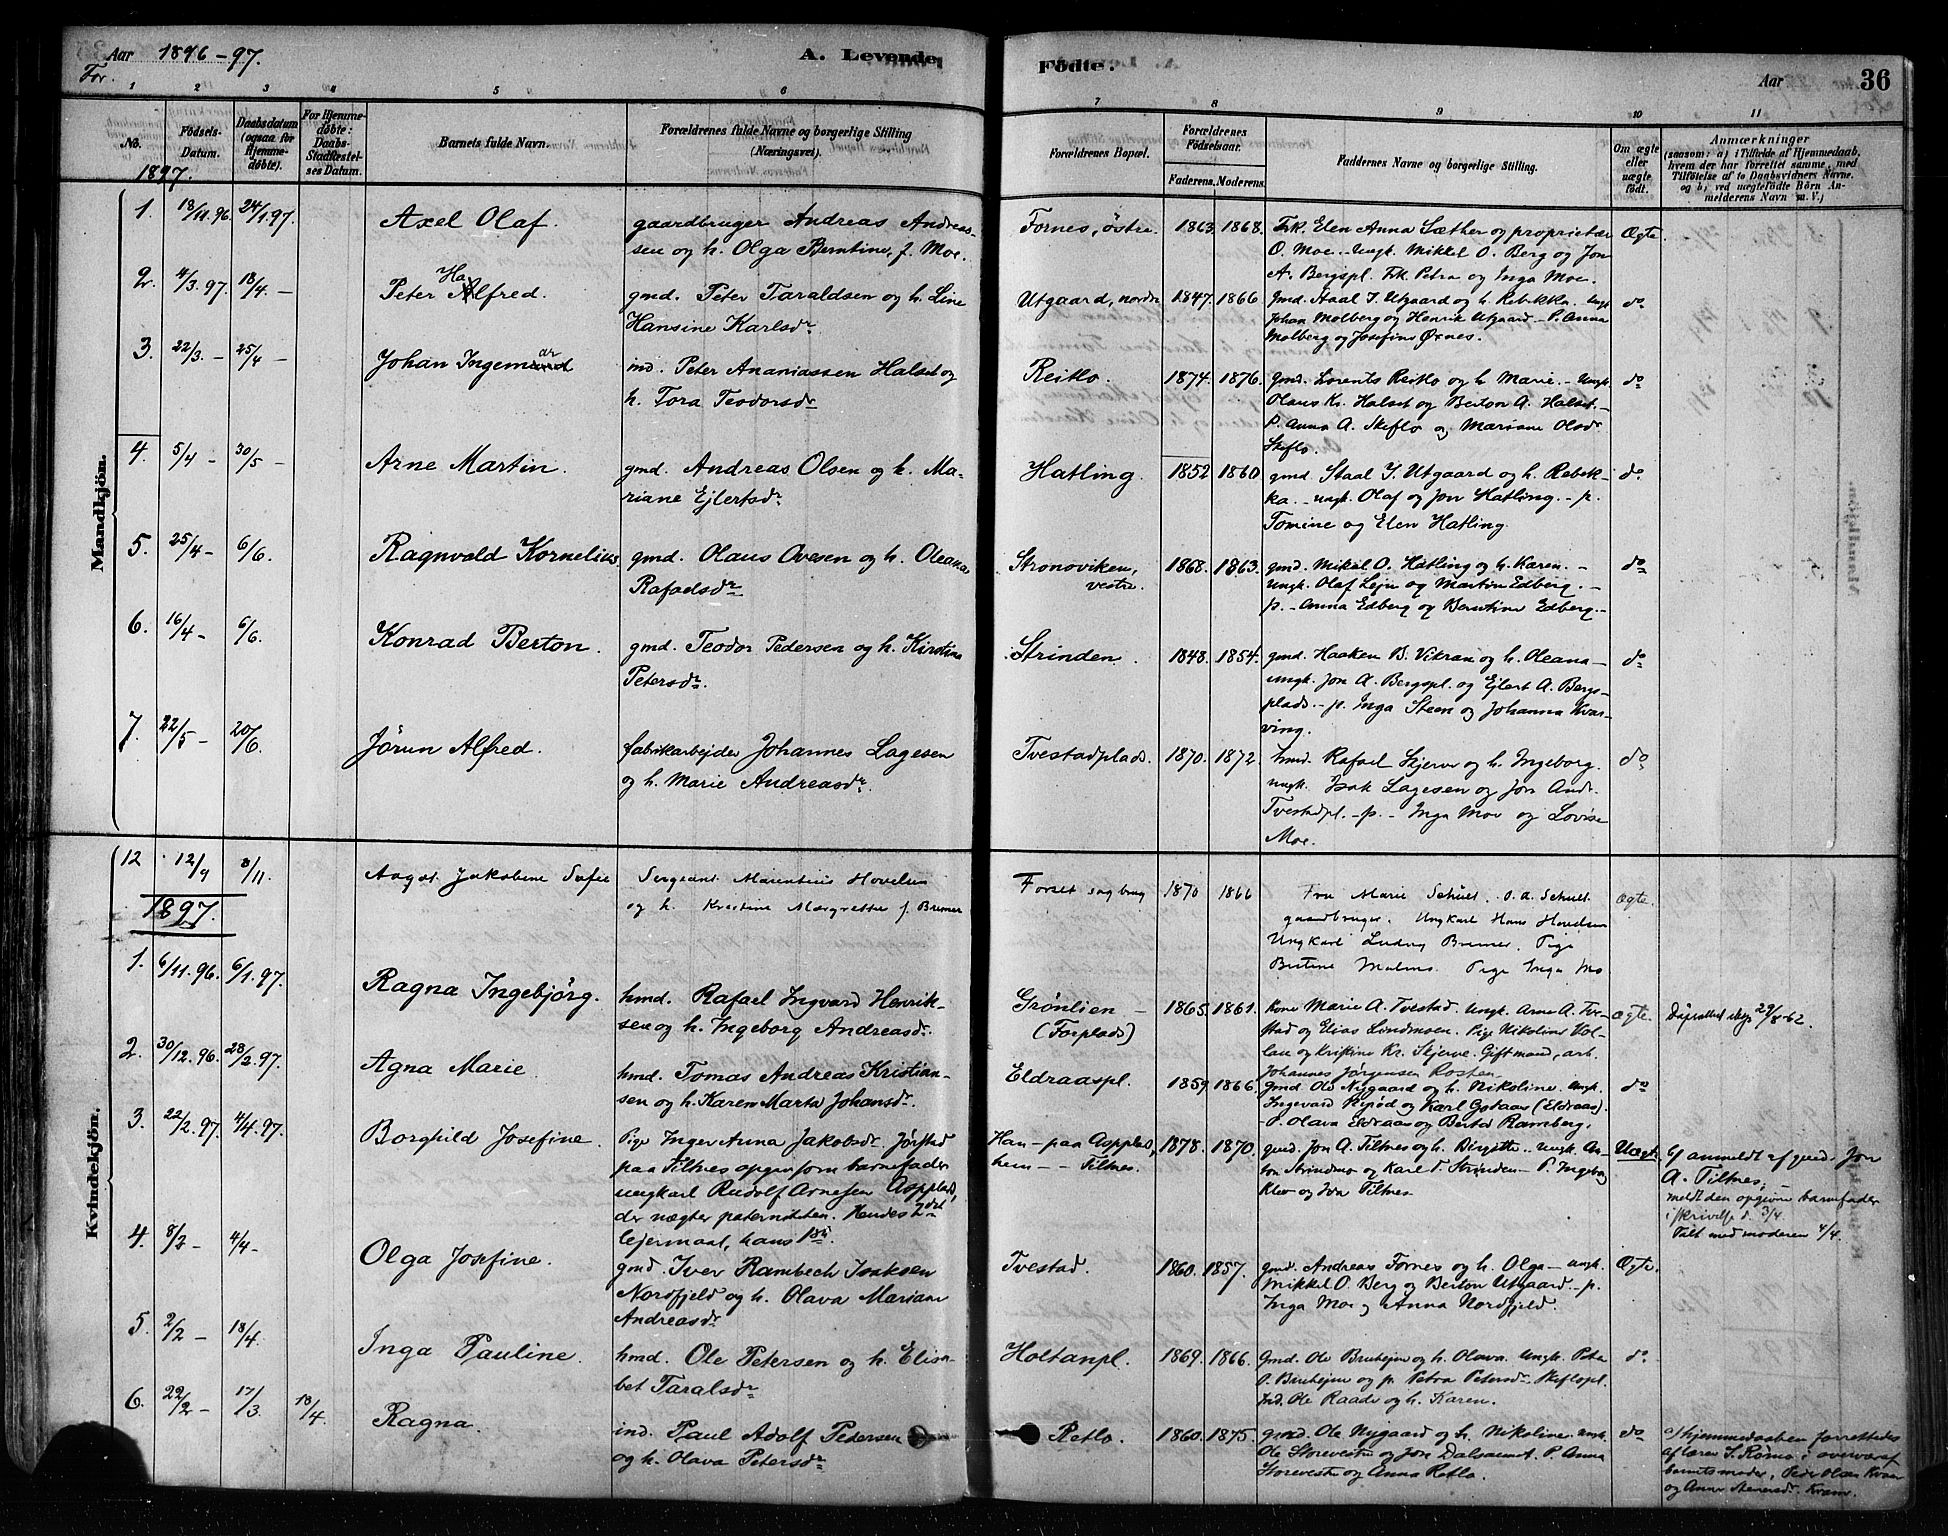 Aar 1896-97.
For.
A. Levende Födte.
Aar
36
1 2 3 4 5 6 7 8 9 10 11
No.
Födsels-Datum.
Daabsdatum (ogsaa for Hjemmedöbte).
For Hjemmedöbte: Daabs-Stadfæstelses Datum.
Barnets fulde Navn.
Forældrenes fulde Navne og borgerlige Stilling (Næringsvei).
Forældrenes Bopæl.
Forældrenes Födselsaar.
Faderens. Moderens.
Faddernes Navne og borgerlige Stilling.
Om ægte eller uægte födt.
Anmærkninger
(saasom: a) i Tilfælde af Hjemmedaab, hvem der har forrettet samme, med Tilföielse af to Daabsvidners Navne, og b) ved uægtefödte Börn Anmelderens Navn m. V.)
1897.
Mandkjön.
1. 18/11.96. 24/1.97. Axel Olaf. gaardbruger Andreas Andreas-
sen og h. Olga Berntine, f. Moe.
Fornes, östre. 1863. 1868. Frk. Elen Anna Sæther og proprietær
O. Moe. ungk. Mikkel O. Berg og Jon
A. Bergspl. Frk. Petra og Inga Moe.
Ægte.
2. 4/3.97. 18/4. – Peter Halfred. gmd. Peter Taraldsen og h. Line
Hansine Karlsdr.
Utgaard, nordre 1847. 1866. gmd. Staal I. Utgaard og h. Rebekka. ungk.
Johan Molberg og Henrik Utgaard – P. Anna
Molberg og Josefine Øxnes.
do
3. 22/3. – 25/4 – Johan Ingemar ind. Peter Ananiassen Halset og
h. Tora Teodorsdr
Reitlo. 1874. 1876. gmd. Lorents Reitlo og h. Marie. – ungk.
Olaus Kr. Halset og Berton A. Halset. –
P. Anna A. Skeflo og Mariane Olsdr
Skeflo.
do
4. 5/4 – 30/5 – Arne Martin. gmd. Andreas Olsen og h. Ma-
riane Ejlertsdr.
Hatling. 1852 1860 gmd. Staal I. Utgaard og h. Rebek-
ka. – ungk. Olaf og Jon Hatling. – p.
Tomine og Elen Hatling.
do
5. 25/4 – 6/6. Ragnvald Kornelius. gmd. Olaus Ovesen og h. Oleana
Rafaelsdr.
Stronoviken, vestre. 1868. 1863. gmd. Mikal O. Hatling og h. Karen. –
ungk. Olaf Lejn og Martin Edberg. –
p. – Anna Edberg og Berntine Edberg. –
do
6. 16/4 – 6/6. Konrad Berton. gmd. Teodor Pedersen og h. Kirstina
Petersdr.
Strinden. 1848. 1854. gmd. Haaken B. Vikran og h. Oleana –
ungk. Jon A. Bergspl. og Ejlert A. Bergs-
plads. – p. Inga Steen og Johanna Kvar-
ving.
do
7. 22/5 – 20/6. Jörun Alfred. fabrikarbejder Johannes Lagesen
og h. Marie Andreasdr.
Tvestadplads. 1870. 1872. hmd. Rafael Skjerve og h. Ingeborg.
ungk. Isak Lagesen og Jon Andr.
Tvestadpl. – p. – Inga Moe og Lovise
Moe.
do
Kvindekjön.
12 12/9 8/11. Aagot Jakobine Sofie Sergeant Marentius Hovelsen
og h. Kristine Margrette f. Bremer
Forset sagbrug 1870 1866 Fru Marie Schult. O. A. Schult
gaardbruger. Ungkarl Hans Hovelsen
Ungkarl Ludvig Bremer. Pige
Bertine Malms. Pige Inga Mo
Ægte.
1897.
1. 6/11.96. 6/1.97. Ragna Ingebjörg. hmd. Rafael Ingvard Henrik-
sen og h. Ingeborg Andreasdr.
Grönlien – (Forplads) 1865. 1861. Kone Marie A. Tvestad. ungk. Arne A. Tve-
stad og Elias Lindmoen. Pige Nikoline Vol-
lan og Kristine Kr. Skjerve. Gift mand, arb.
Johannes Jörgensen Rosten.
ægte. Dåpsattest utlagt 29/8-62.
2. 30/12.96. 28/2.97. Agna Marie. hmd. Tomas Andreas Kristian-
sen og h. Karen Marta Johansdr.
Eldraaspl. 1859 1866. gmd. Ole Nygaard og h. Nikoline. ungk.
Ingevard Ripöd og Karl Gstaas (Eldraas).
P. Olava Eldraas og Berta Ramberg.
do
3. 22/2.97. 4/4.97. Borghild Josefine. Pige Inger Anna Jakobsdr. Jörstad
paa Tiltnes opgen som barnefader
ungkarl Rudolf Arnesen Aspplads,
der nægter paterniteten. Hendes 2det
lejermaal, hans 1ste.
Han – paa Aspplads, hun – – Tiltnes. 1878. 1870. gmd. Jon A. Tiltnes og h. Birgitte. – ungk. An-
ton Strindmo og Karl T. Strinden – P. Ingeborg
Klev og Ida Tiltnes.
Uægte. b) anmeldt af gmd. Jon
A. Tiltnes. –
meldt den opgivne barnefader
i skrivelse d. 3/4.
Talt med moderen 4/4.
4. 8/3 – 4/4 – Olga Josefine. gmd. Iver Rambech Isaksen
Nordfjeld og h. Olava Mariane
Andreasdr
Tvestad. 1860. 1857. gmd. Andreas Fornes og h. Olga – ungk.
Mikkel O. Berg og Berton Utgaard. – p.
Inga Moe og Anna Nordfjeld.
Ægte.
5. 2/2 – 18/4. Inga Pauline. hmd. Ole Petersen og h. Elisa-
bet Taralsdr
Holtanpl. 1869. 1866. gmd. Ole Bruhejen og h. Olava. ungk. Peter
O. Bruhejen og p. Petra Petersdr. Skeflopl.
Ind. Ole Raade og h. Karen.
do
6. 22/2 – 17/3. 18/4. Ragna. ind. Paul Adolf Pedersen
og h. Olava Petersdr
Retlo. 1860. 1875. gmd. Ole Nygaard og h. Nikoline. ungk.
Ole Storevestre og Jon Dalsaunet. P. Anna
Storevestre og Anna Retlo.
do a) hjemmedaaben forrettedes
af lærer S. Römo i overvær af
barnets moder, Peder Olsen Kvam
og Anne Arnersdr. Kvam.